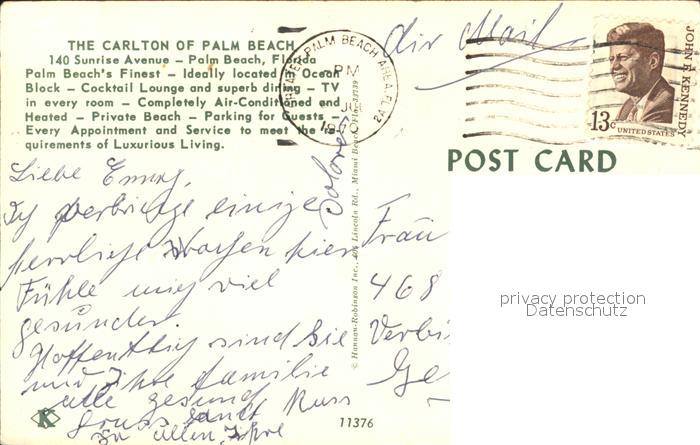 THE CARLTON OF PALM BEACH
140 Sunrise Avenue – Palm Beach, Florida
Palm Beach's Finest – Ideally located Ocean
Block – Cocktail Lounge and superb dining – TV
in every room – Completely Air-Conditioned and
Heated – Private Beach – Parking for Guests –
Every Appointment and Service to meet the re-
quirements of Luxurious Living.
PALM BEACH AREA, FL
PM
Air Mail
JOHN F. KENNEDY
13c UNITED STATES
POST CARD
Liebe Emmy,
Ich verbringe einige
herrliche Wochen hier
Fühle mich viel
gesünder.
Hoffentlich sind Sie
und Ihre Familie
alle gesund
Gruss und Kuss
zu allen, Ihre
Dolores
© Hannau-Robinson Inc., Lincoln Rd., Miami Beach, Fla.
Frau
468
Verbi
Ge
privacy protection
Datenschutz
K
11376